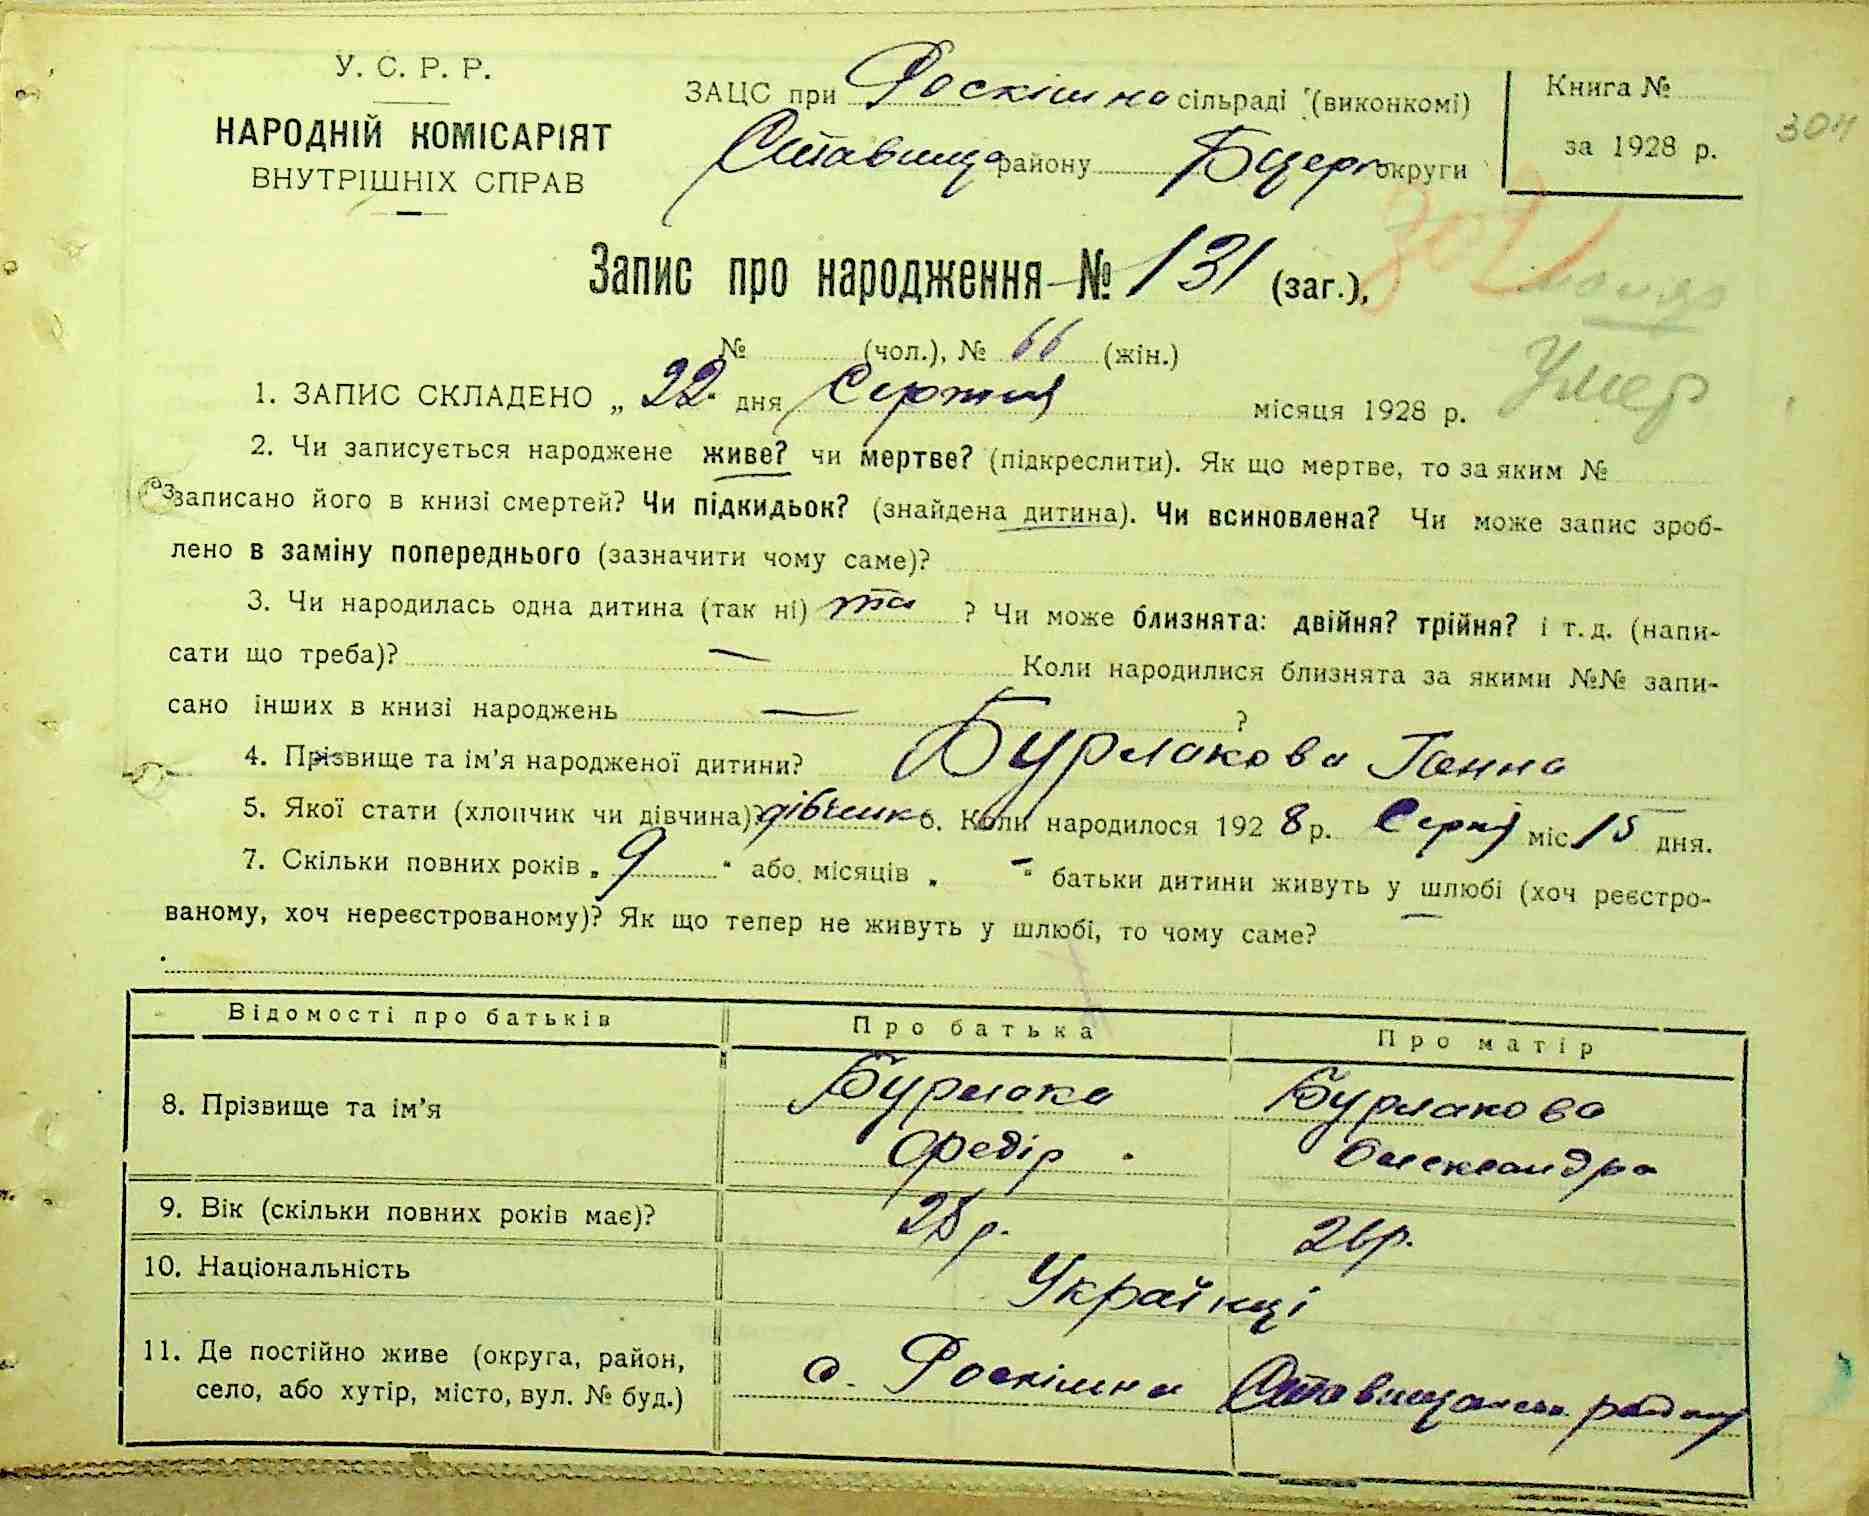 У. С. Р. Р.
НАРОДНІЙ КОМІСАРІЯТ
ВНУТРІШНІХ СПРАВ
ЗАЦС при Роскішна сільраді (виконкомі)
Ставище району Бцерк округи
Книга №
за 1928 р.
304
302
Запис про народження № 131 (заг.),
№ (чол.), № 66 (жін.)
Умер
1. ЗАПИС СКЛАДЕНО „ 22 " дня Серпня місяця 1928 р.
2. Чи записується народжене живе? чи мертве? (підкреслити). Як що мертве, то за яким №
записано його в книзі смертей? Чи підкидьок? (знайдена дитина). Чи всиновлена? Чи може запис зроб-
лено в заміну попереднього (зазначити чому саме)?
3. Чи народилась одна дитина (так ні) та ? Чи може близнята: двійня? трійня? і т. д. (напи-
сати що треба)? — Коли народилися близнята за якими №№ запи-
сано інших в книзі народжень — ?
4. Прізвище та ім'я народженої дитини? Бурлакова Ганна
5. Якої стати (хлопчик чи дівчина)? дівчинк 6. Коли народилося 1928 р. Серп міс 15 дня.
7. Скільки повних років „ 9 " або місяців „ — " батьки дитини живуть у шлюбі (хоч реєстро-
ваному, хоч нереєстрованому)? Як що тепер не живуть у шлюбі, то чому саме? —
Відомості про батьків Про батька Про матір
8. Прізвище та ім'я Бурлака Федір Бурлакова Олександра
9. Вік (скільки повних років має)? 28 р. 26 р.
10. Національність Українці
11. Де постійно живе (округа, район,
село, або хутір, місто, вул. № буд.) с. Роскішна Ставищанськ району